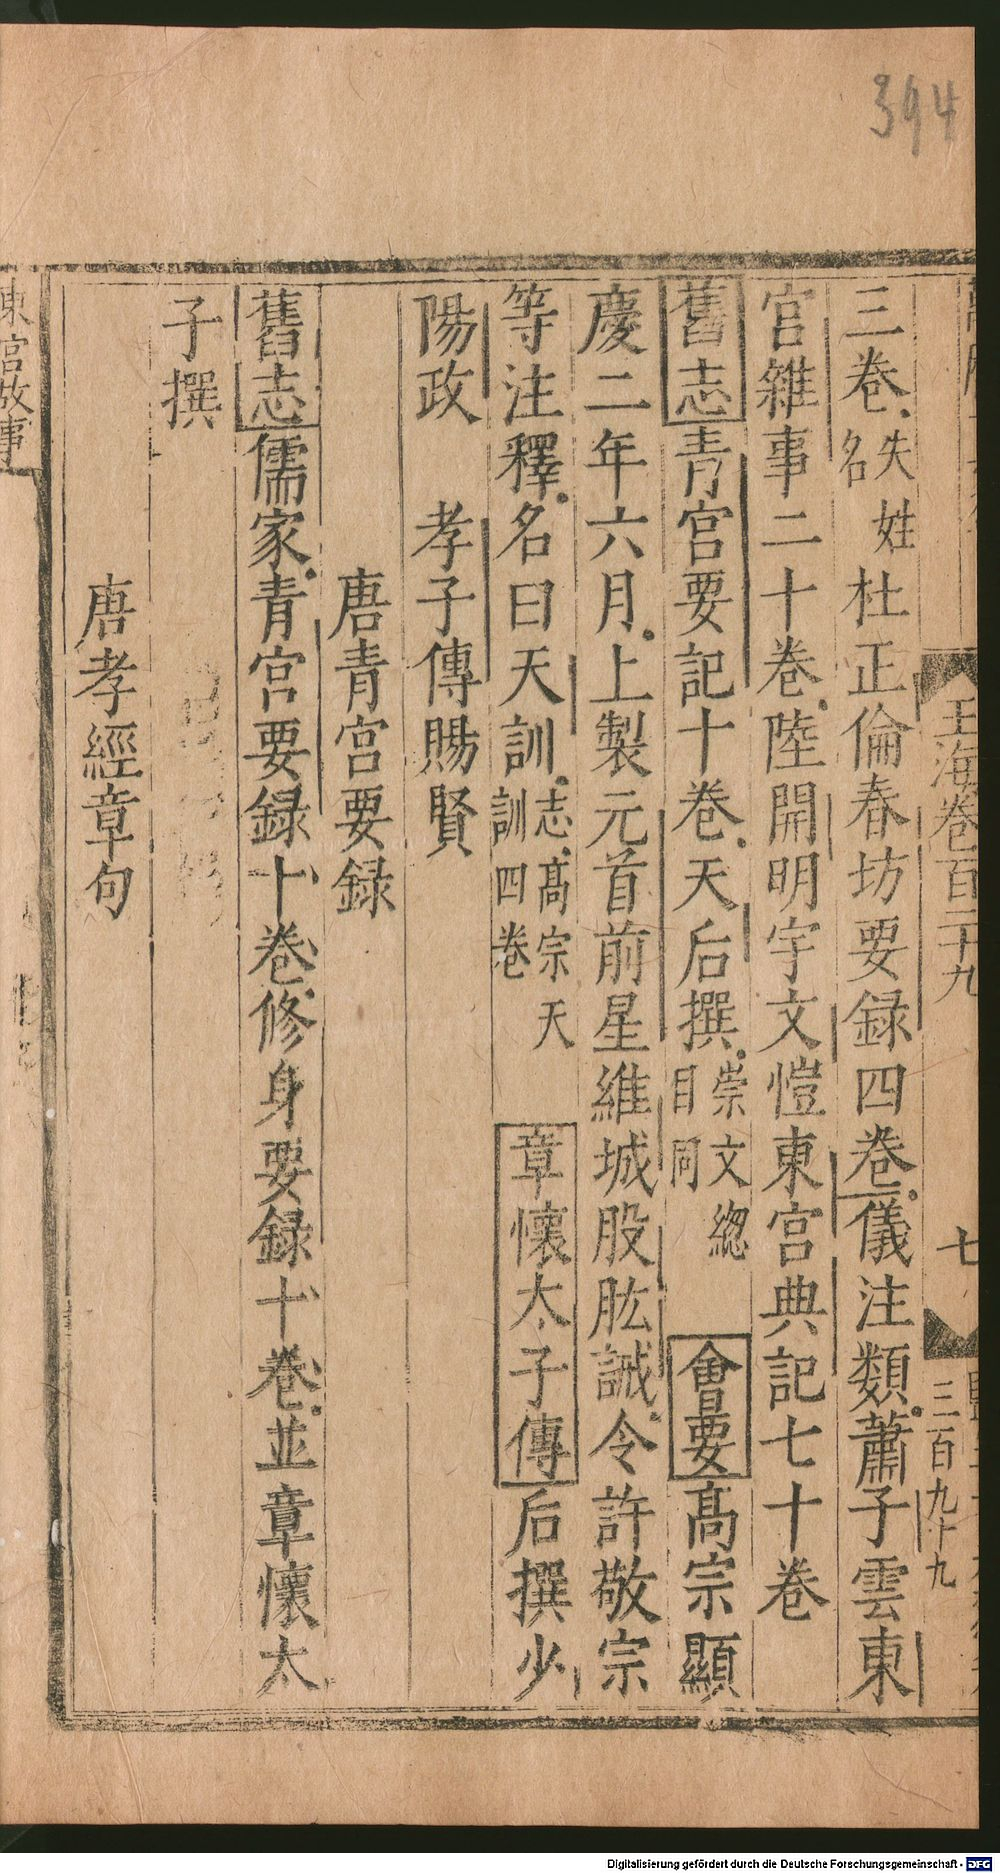 394
玉海卷百二十九
七
三百九十九
三卷失姓名杜正倫春坊要録四卷儀注類蕭子雲東
宮雜事二十卷陸開明宇文愷東宮典記七十卷
舊志青宮要記十卷天后撰崇文總目同會要高宗顯
慶二年六月上製元首前星維城股肱誡令許敬宗
等注釋名曰天訓志高宗天訓四卷章懷太子傳后撰少
陽政 孝子傳賜賢
唐青宮要録
舊志儒家青宮要録十卷修身要録十卷並章懷太
子撰
唐孝經章句
東宮故事
Digitalisierung gefördert durch die Deutsche Forschungsgemeinschaft - DFG